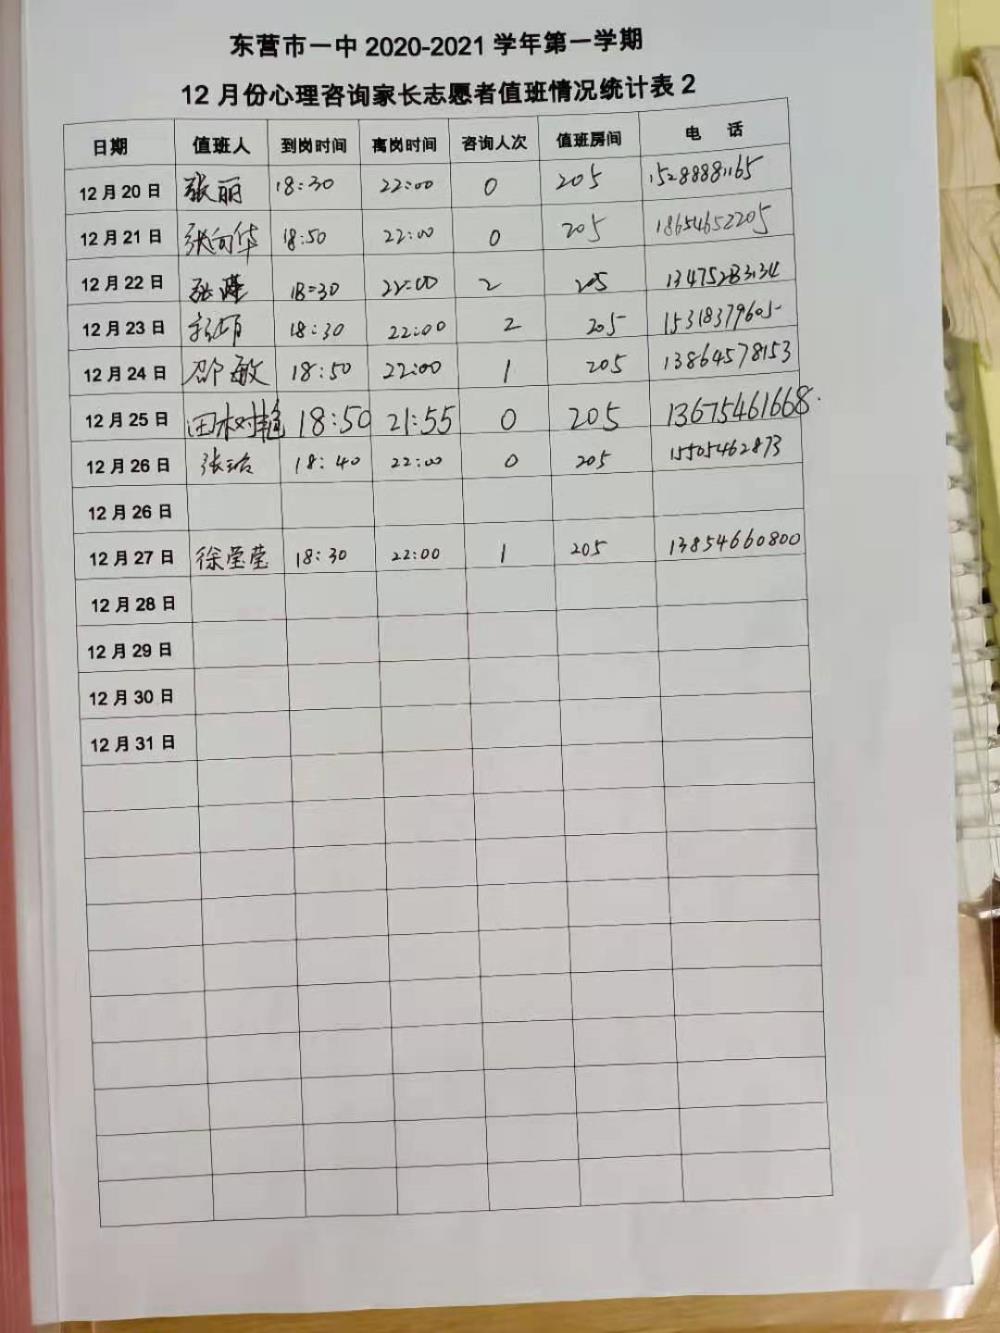 东营市一中 2020-2021 学年第一学期
12 月份心理咨询家长志愿者值班情况统计表 2
日期 值班人 到岗时间 离岗时间 咨询人次 值班房间 电 话
12 月 20 日 张丽 18:30 22:00 0 205 15288881165
12 月 21 日 张向华 18:50 22:00 0 205 18654652205
12 月 22 日 18:30 22:00 2 205 13475283134
12 月 23 日 18:30 22:00 2 205 15318379605
12 月 24 日 邵敏 18:50 22:00 1 205 13864578153
12 月 25 日 田树艳 18:50 21:55 0 205 13675461668.
12 月 26 日 18:40 22:00 0 205 15505462873
12 月 26 日
12 月 27 日 徐莹莹 18:30 22:00 1 205 13854660800
12 月 28 日
12 月 29 日
12 月 30 日
12 月 31 日